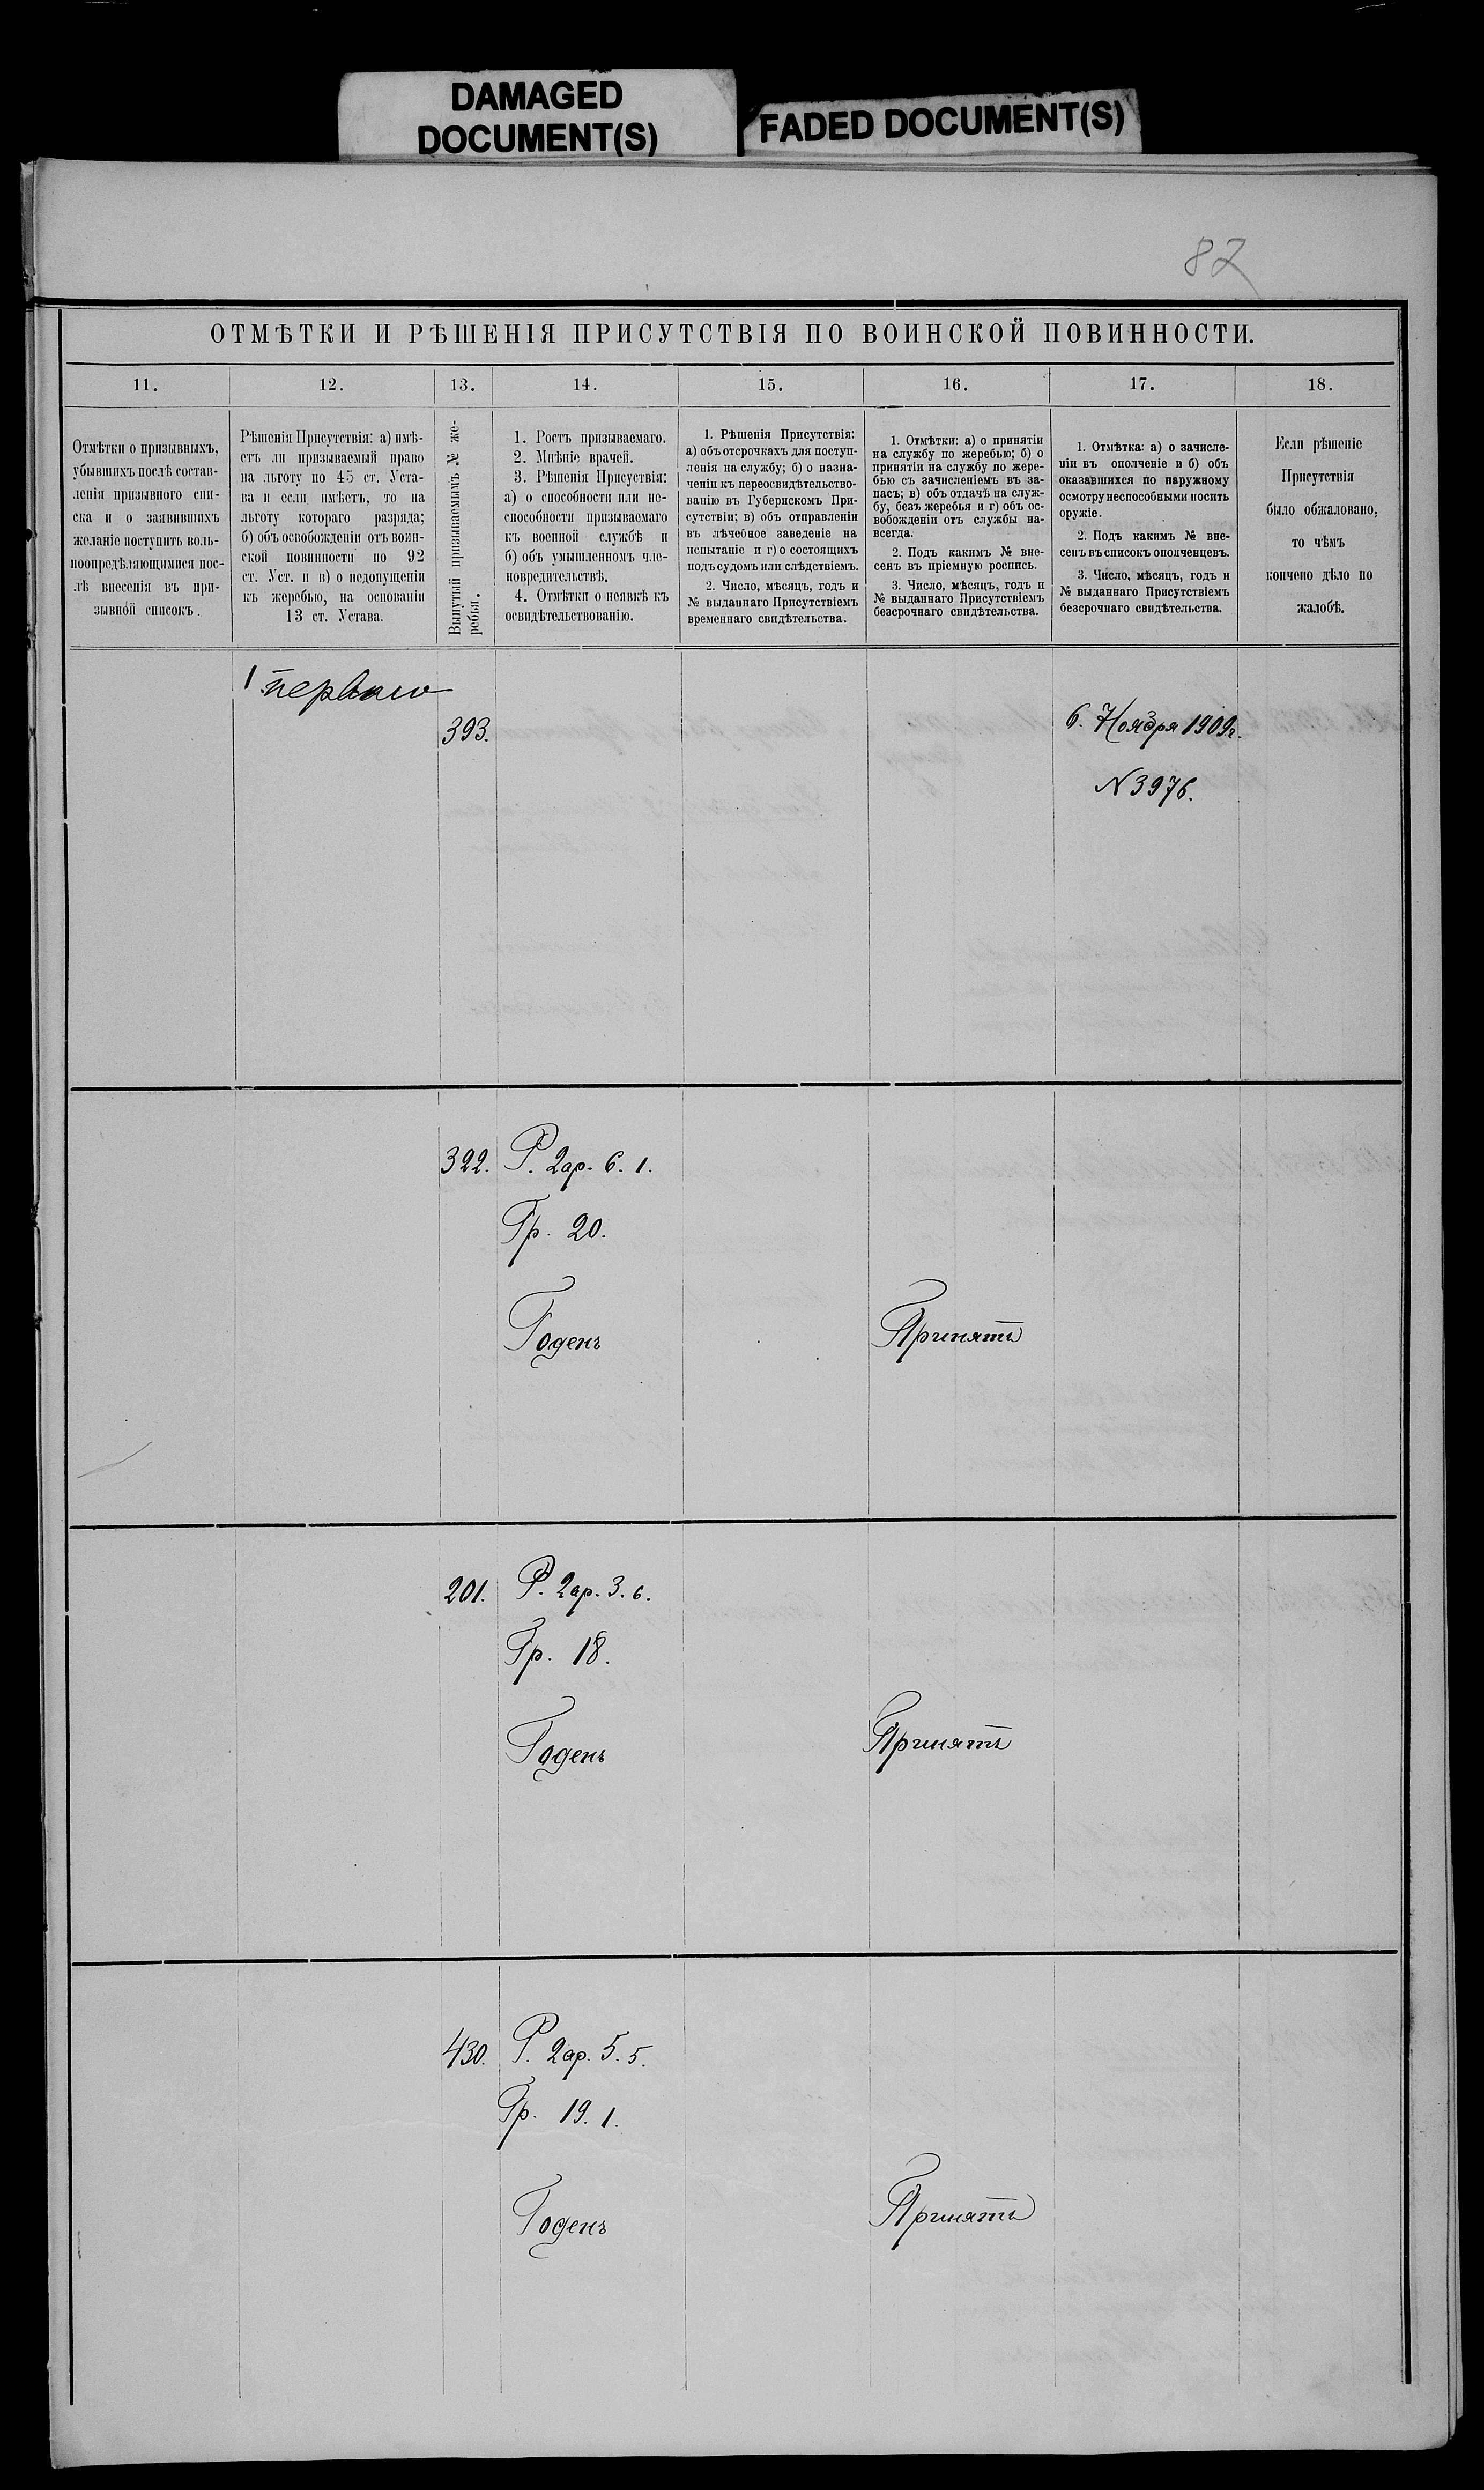 DAMAGED
DOCUMENT(S)
FADED DOCUMENT(S)
82
ОТМѢТКИ И РѢШЕНІЯ ПРИСУТСТВІЯ ПО ВОИНСКОЙ ПОВИННОСТИ.
11.
12.
13.
14.
15.
16.
17.
18.
Отмѣтки о призывныхъ,
убывшихъ послѣ состав-
ленія призывного спи-
ска и о заявившихъ
желаніе поступить воль-
ноопредѣляющимися пос-
лѣ внесенія въ при-
зывной списокъ.
Рѣшенія Присутствія: а) имѣ-
етъ ли призываемый право
на льготу по 45 ст. Уста-
ва и если имѣетъ, то на
льготу котораго разряда;
б) объ освобожденіи отъ воин-
ской повинности по 92
ст. Уст. и в) о недопущеніи
къ жеребью, на основаніи
13 ст. Устава.
Вынутый призываемымъ № же-
ребья.
1. Ростъ призываемаго.
2. Мнѣніе врачей.
3. Рѣшенія Присуствія:
а) о способности или не-
способности призываемаго
къ военной службѣ и
б) объ умышленномъ чле-
новредительствѣ.
4. Отмѣтки о неявкѣ къ
освидѣтельствованію.
1. Рѣшенія Присутствія:
а) объ отсрочкахъ для поступ-
ленія на службу; б) о назна-
ченіи къ переосвидѣтельство-
ванію въ Губернскомъ При-
сутствіи; в) объ отправленіи
въ лѣчебное заведеніе на
испытаніе и г) о состоящихъ
подъ судомъ или слѣдствіемъ.
2. Число, мѣсяцъ, годъ и
№ выданнаго Присутствіемъ
временнаго свидѣтельства.
1. Отмѣтки: а) о принятіи
на службу по жеребью; б) о
принятіи на службу по жере-
бью съ зачисленіемъ въ за-
пасъ; в) объ отдачѣ на служ-
бу, безъ жеребья и г) объ ос-
вобожденіи отъ службы на-
всегда.
2. Подъ какимъ № вне-
сенъ въ пріемную роспись.
3. Число, мѣсяцъ, годъ и
№ выданнаго Присутствіемъ
безсрочнаго свидѣтельства.
1. Отмѣтка: а) о зачисле-
ніи въ ополченіе и б) объ
оказавшихся по наружному
осмотру неспособными носить
оружіе.
2. Подъ какимъ № вне-
сенъ въ списокъ ополченцевъ.
3. Число, мѣсяцъ, годъ и
№ выданнаго Присутствіемъ
безсрочнаго свидѣтельства.
Если рѣшеніе
Присутствія
было обжаловано,
то чѣмъ
кончено дѣло по
жалобѣ.
1 перваго
393.
6. Ноября 1909 г.
N 3976.
322. Р. 2 ар. 6. 1.
Гр. 20.
Годенъ
Принятъ
201. Р. 2 ар. 3. 6.
Гр. 18.
Годенъ
Принятъ
430. Р. 2 ар. 5. 5.
Гр. 19. 1.
Годенъ
Принятъ